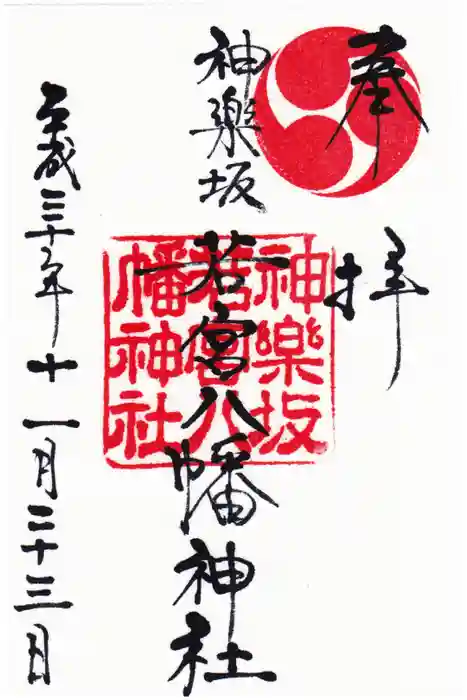 奉拝
神樂坂
若宮八幡神社
神樂坂
若宮八
幡神社
平成三十年十一月二十三日